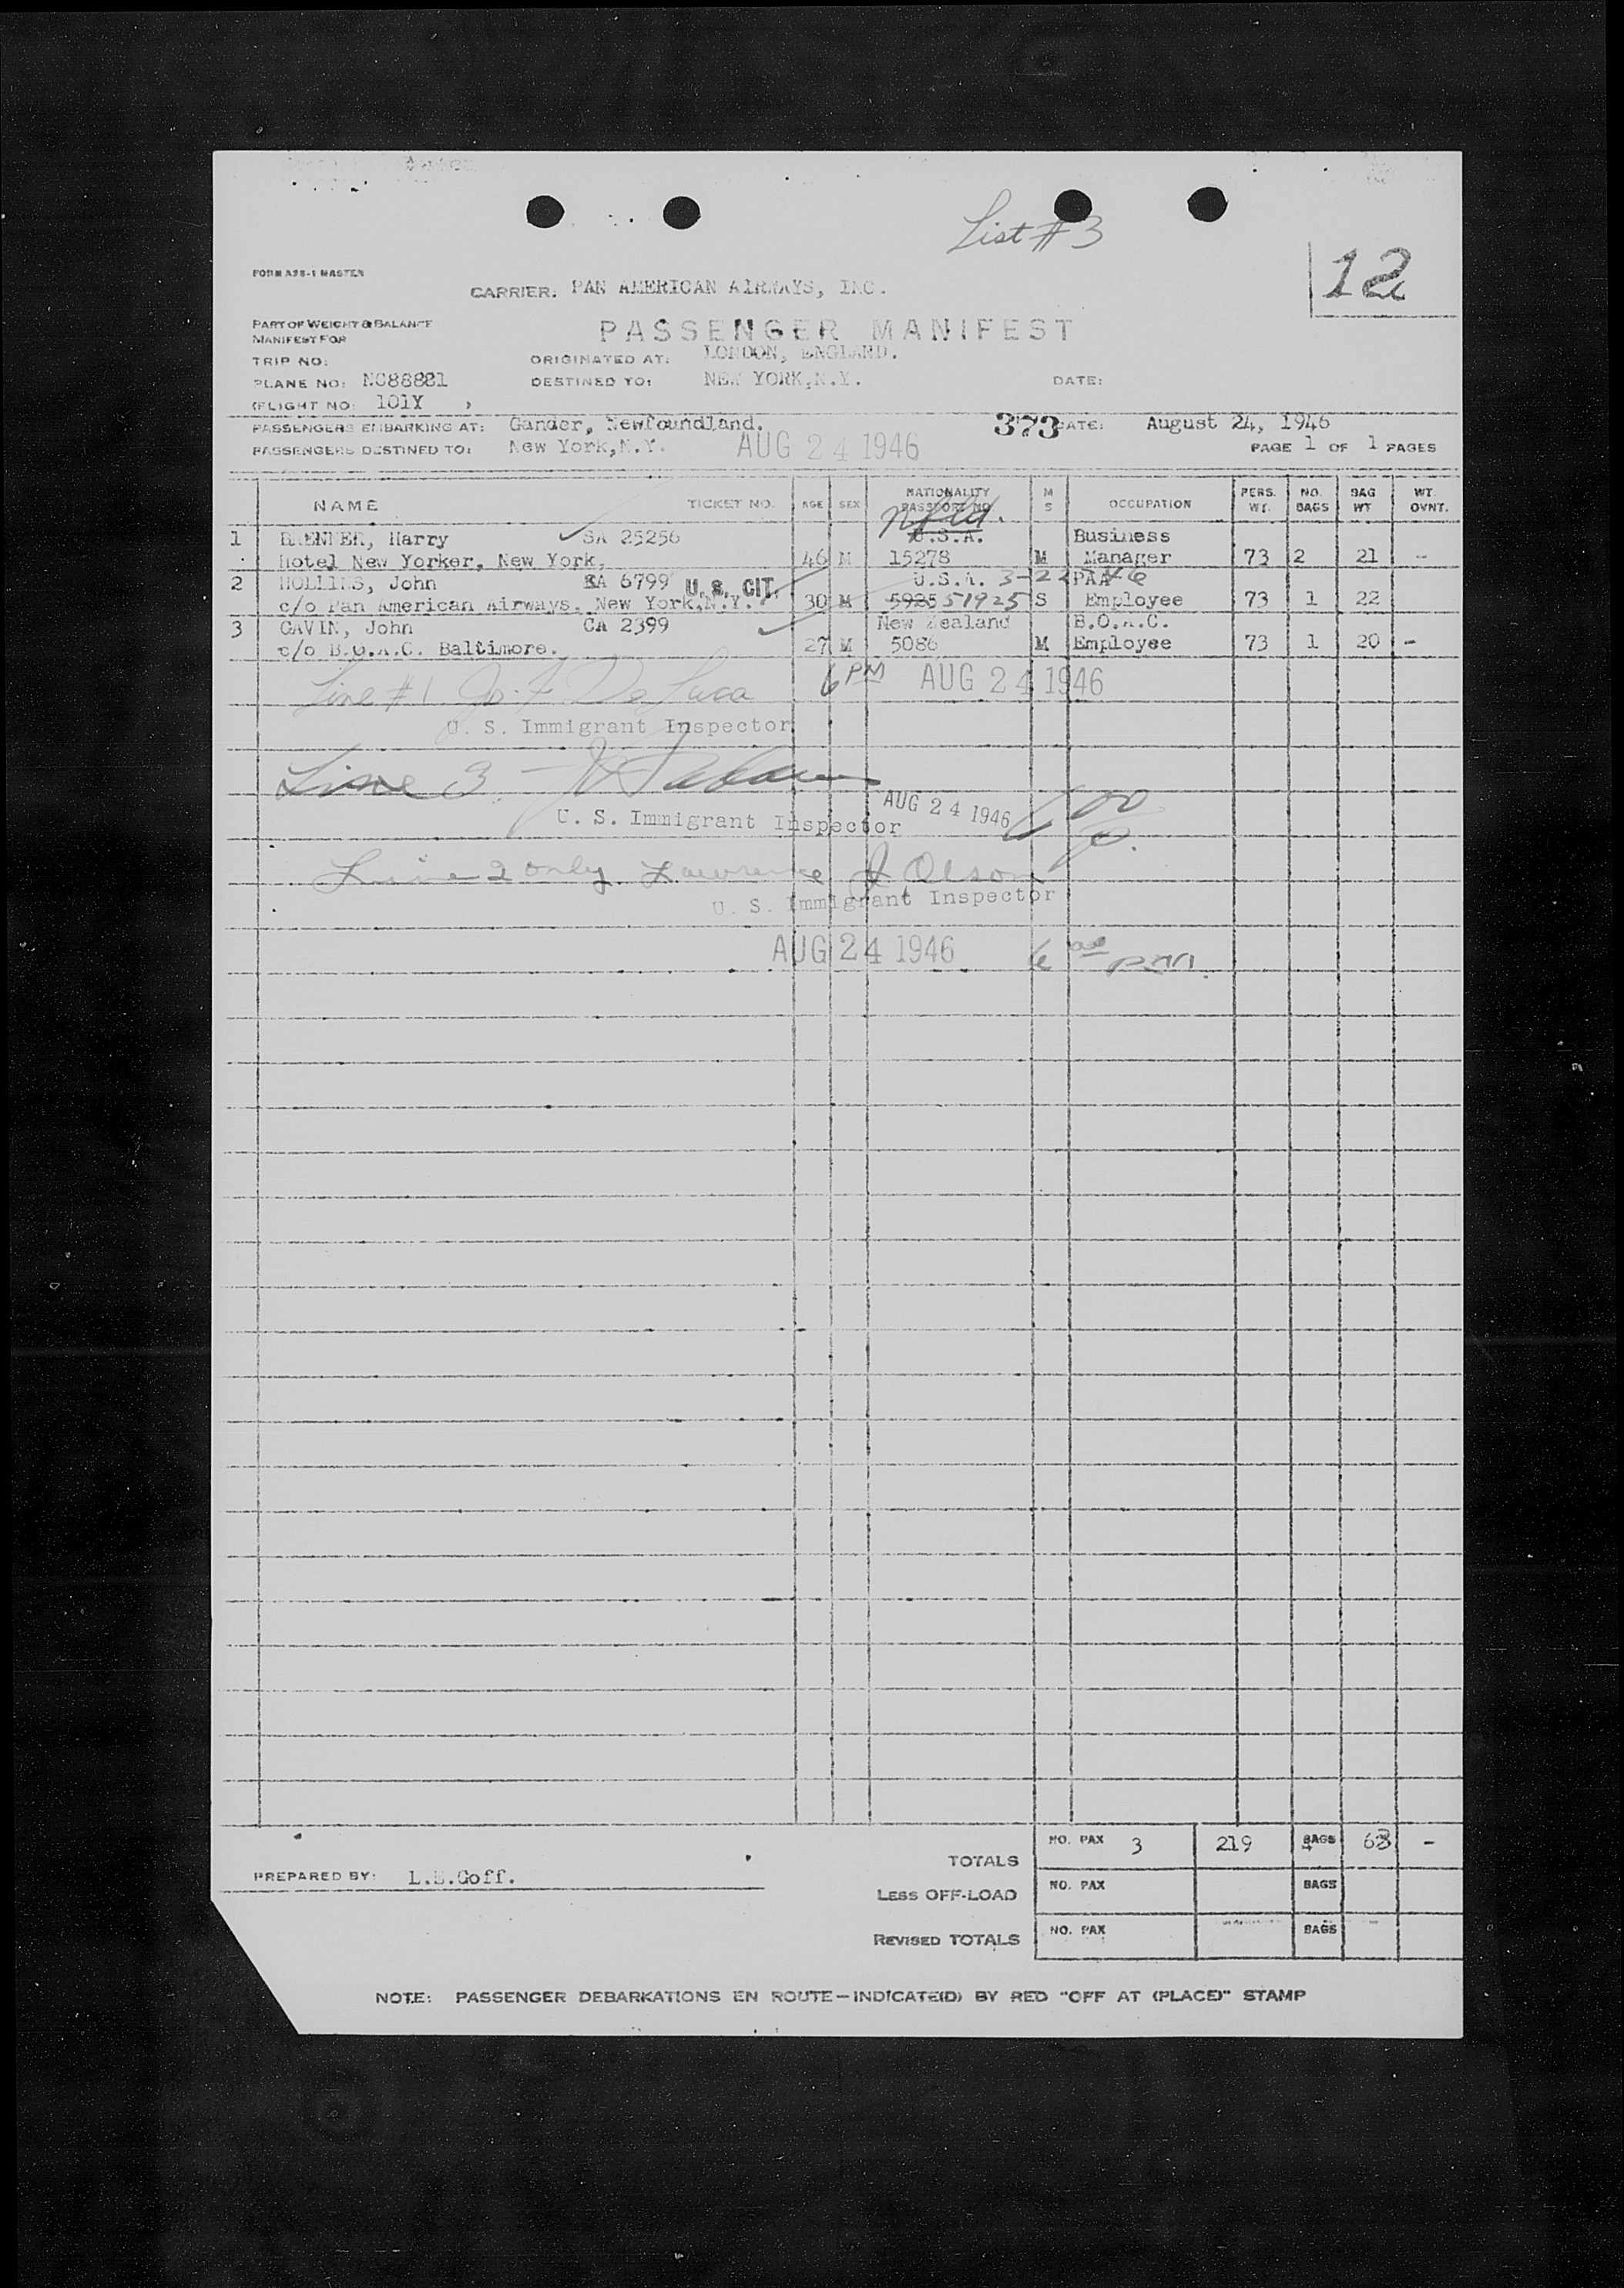 List # 3
12
FORM A98-1 MASTER
CARRIER: PAN AMERICAN AIRWAYS, INC.
PART OF WEIGHT & BALANCE
MANIFEST FOR
PASSENGER MANIFEST
TRIP NO:
ORIGINATED AT: LONDON, ENGLAND.
PLANE NO: NC88881
DESTINED TO: NEW YORK,N.Y.
DATE:
(FLIGHT NO: 101X )
PASSENGERS EMBARKING AT: Gander, Newfoundland. 373 DATE: August 24, 1946
PASSENGERS DESTINED TO: New York,N.Y. AUG 24 1946 PAGE 1 OF 1 PAGES
NAME TICKET NO. AGE SEX NATIONALITY PASSPORT NO. M S OCCUPATION PERS. WT. NO. BAGS BAG WT WT. OVNT.
Nfld.
1 BRENNER, Harry SA 25256 U.S.A. Business
Hotel New Yorker, New York, 46 M 15278 M Manager 73 2 21 -
2 HOLLINS, John SA 6799 U.S. CIT. U.S.A. 3-22-46 PAA
c/o Pan American Airways, New York,N.Y. 30 M 5925 51925 S Employee 73 1 22
3 GAVIN, John CA 2399 New Zealand B.O.A.C.
c/o B.O.A.C. Baltimore. 27 M 5086 M Employee 73 1 20 -
Line #1 Jo. F. De Luca 6 PM AUG 24 1946
U. S. Immigrant Inspector
Line 3 -
AUG 24 1946 6 00 p.
U. S. Immigrant Inspector
Line 2 only Lawrence J Olson
U. S. Immigrant Inspector
AUG 24 1946 6 00 pm.
TOTALS NO. PAX 3 219 BAGS 4 63 -
PREPARED BY: L.E.Goff.
LESS OFF-LOAD NO. PAX BAGS
REVISED TOTALS NO. PAX BAGS
NOTE: PASSENGER DEBARKATIONS EN ROUTE—INDICATE(D) BY RED "OFF AT (PLACE)" STAMP